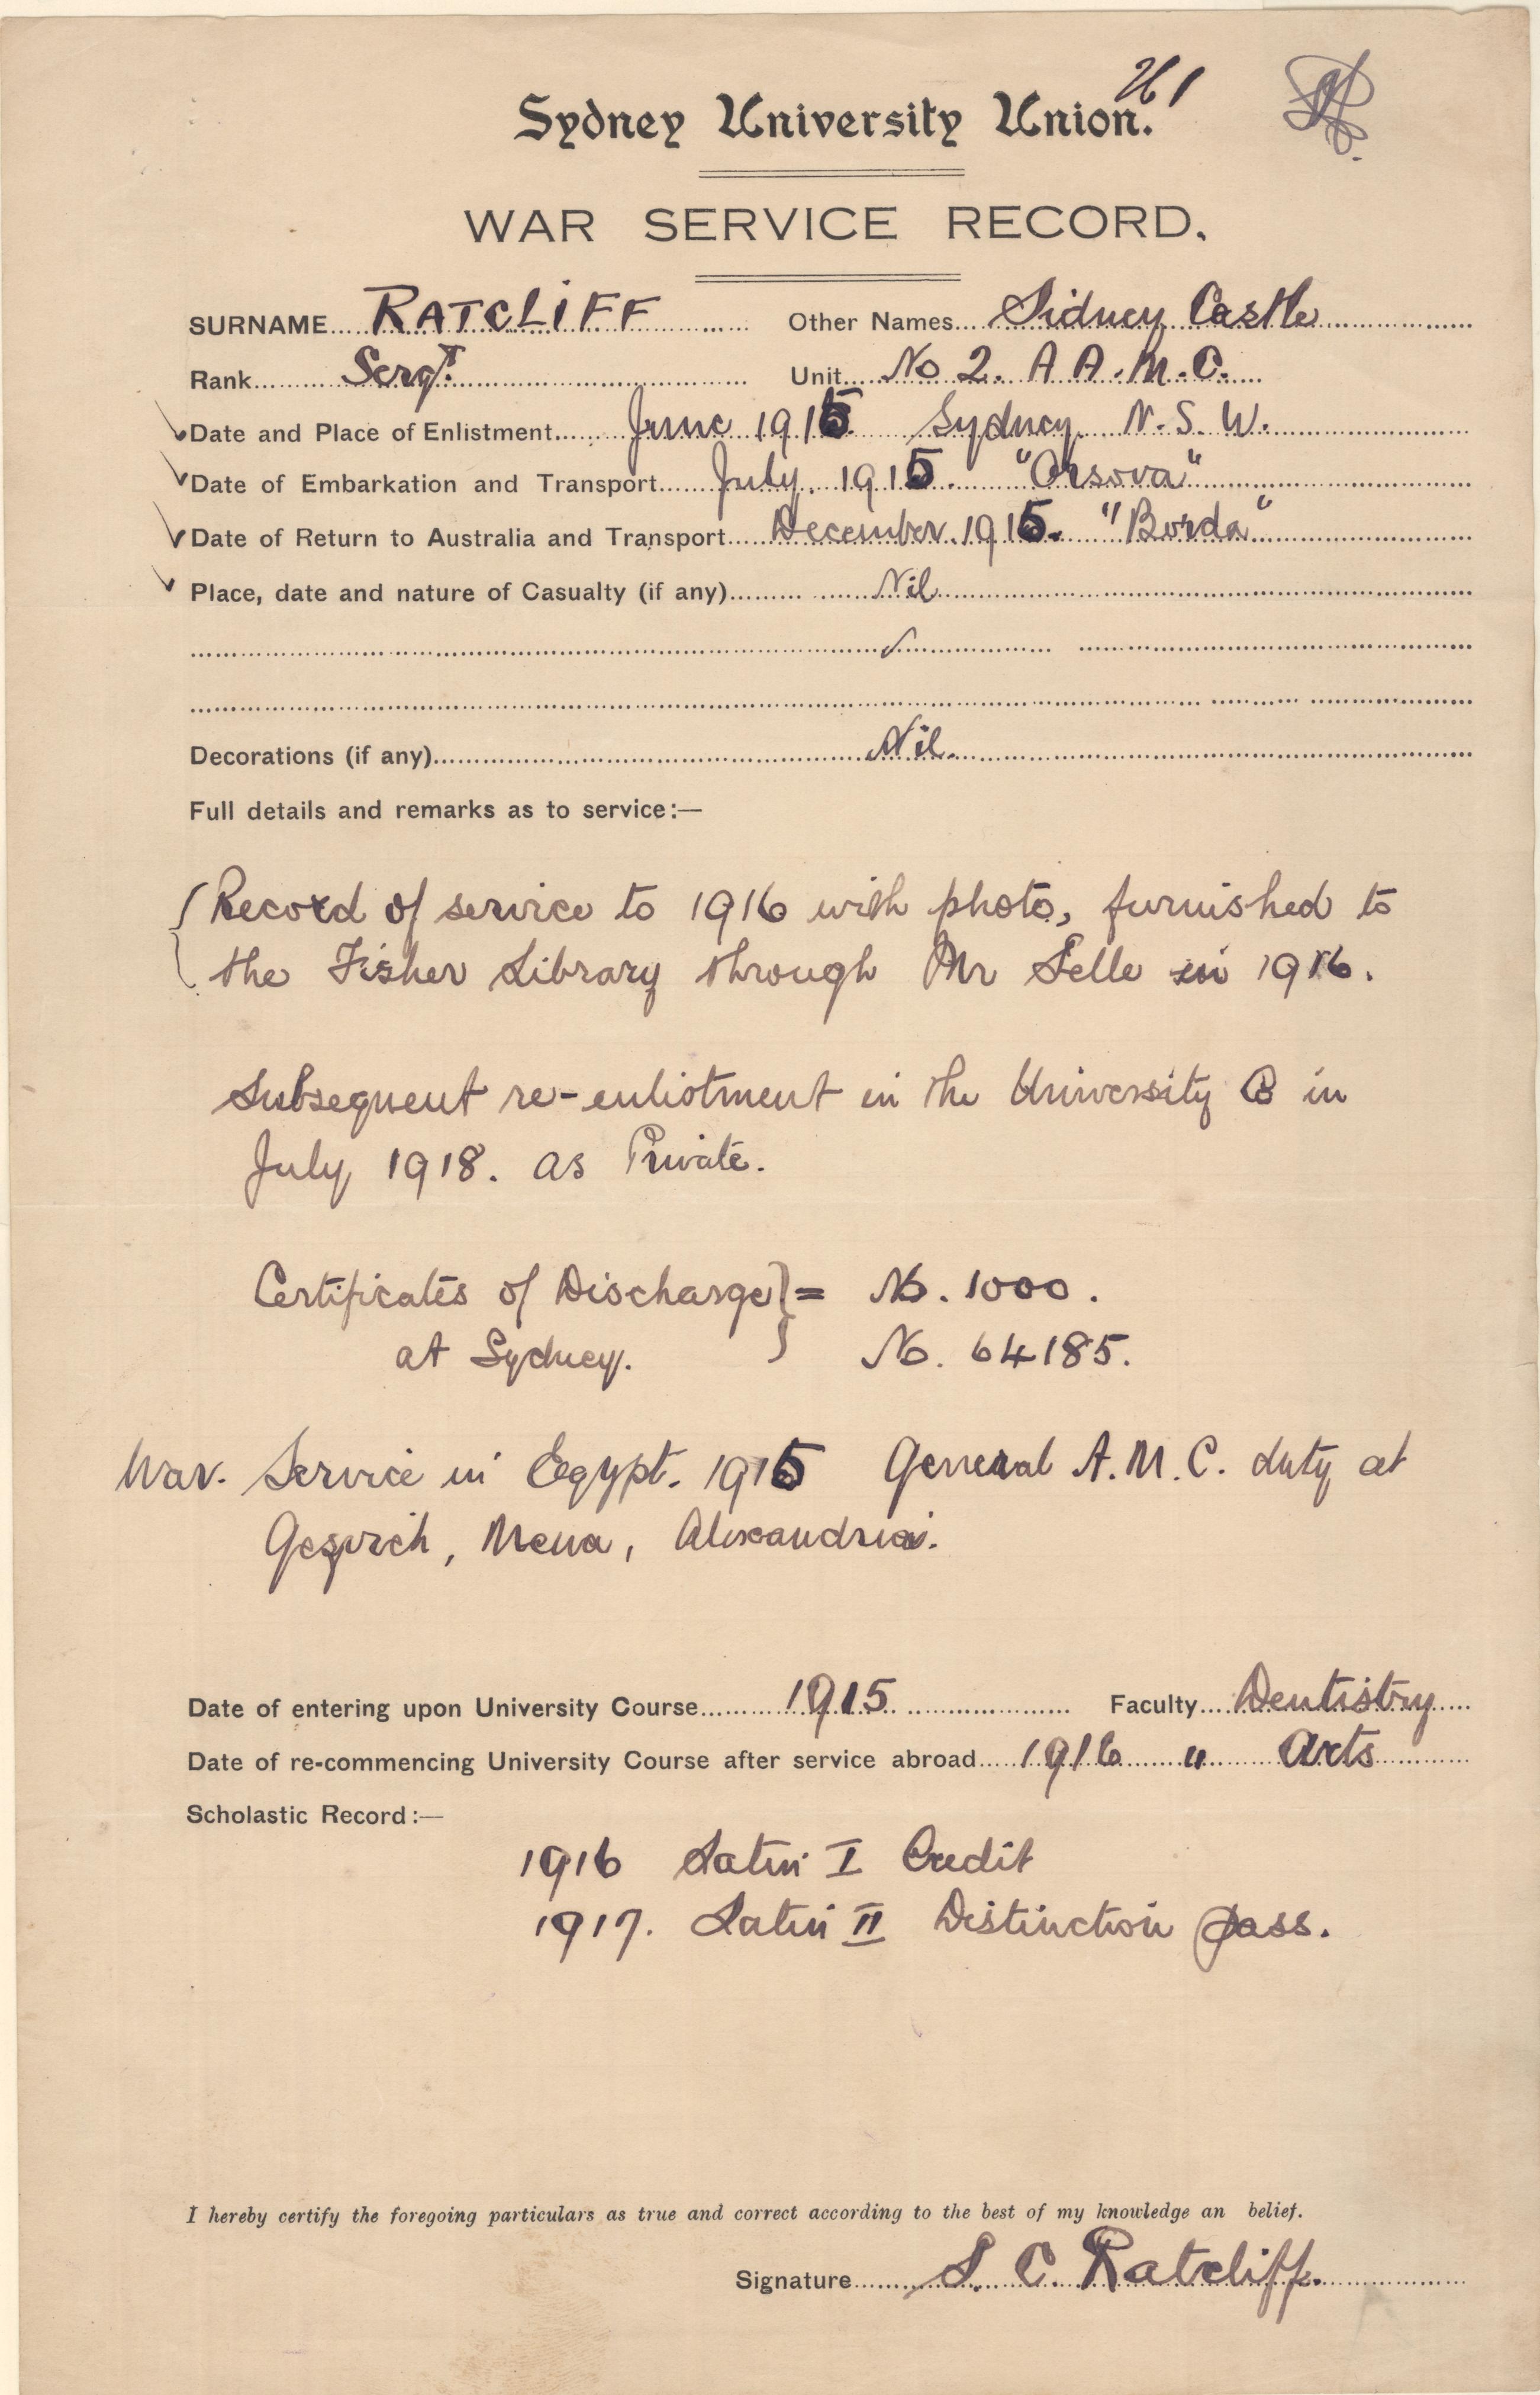 261
Sydney University Union.
WAR SERVICE RECORD.
SURNAME RATCLIFF Other Names Sidney Castle
Rank Sergt. Unit No 2. A A. M. C.
Date and Place of Enlistment June 1915 Sydney N. S. W.
Date of Embarkation and Transport July 1915. "Orsova"
Date of Return to Australia and Transport December 1915. "Borda"
Place, date and nature of Casualty (if any) Nil
Decorations (if any) Nil.
Full details and remarks as to service:—
Record of service to 1916 with photo, furnished to
the Fisher Library through Mr Selle in 1916.
Subsequent re-enlistment in the University Co in
July 1918. as Private.
Certificates of Discharge = No. 1000.
at Sydney. No. 64185.
War. Service in Egypt. 1915 General A. M. C. duty at
Mena, Alexandria.
Date of entering upon University Course 1915 Faculty Dentistry
Date of re-commencing University Course after service abroad 1916 " Arts
Scholastic Record:—
1916 Latin I Credit
1917. Latin II Distinction pass.
I hereby certify the foregoing particulars as true and correct according to the best of my knowledge an belief.
Signature S. C. Ratcliff.